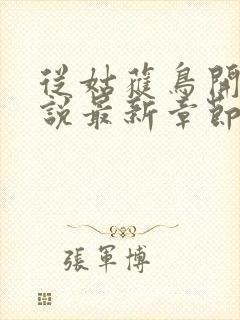 從姑蕥鳥開
說最新章節
張軍博